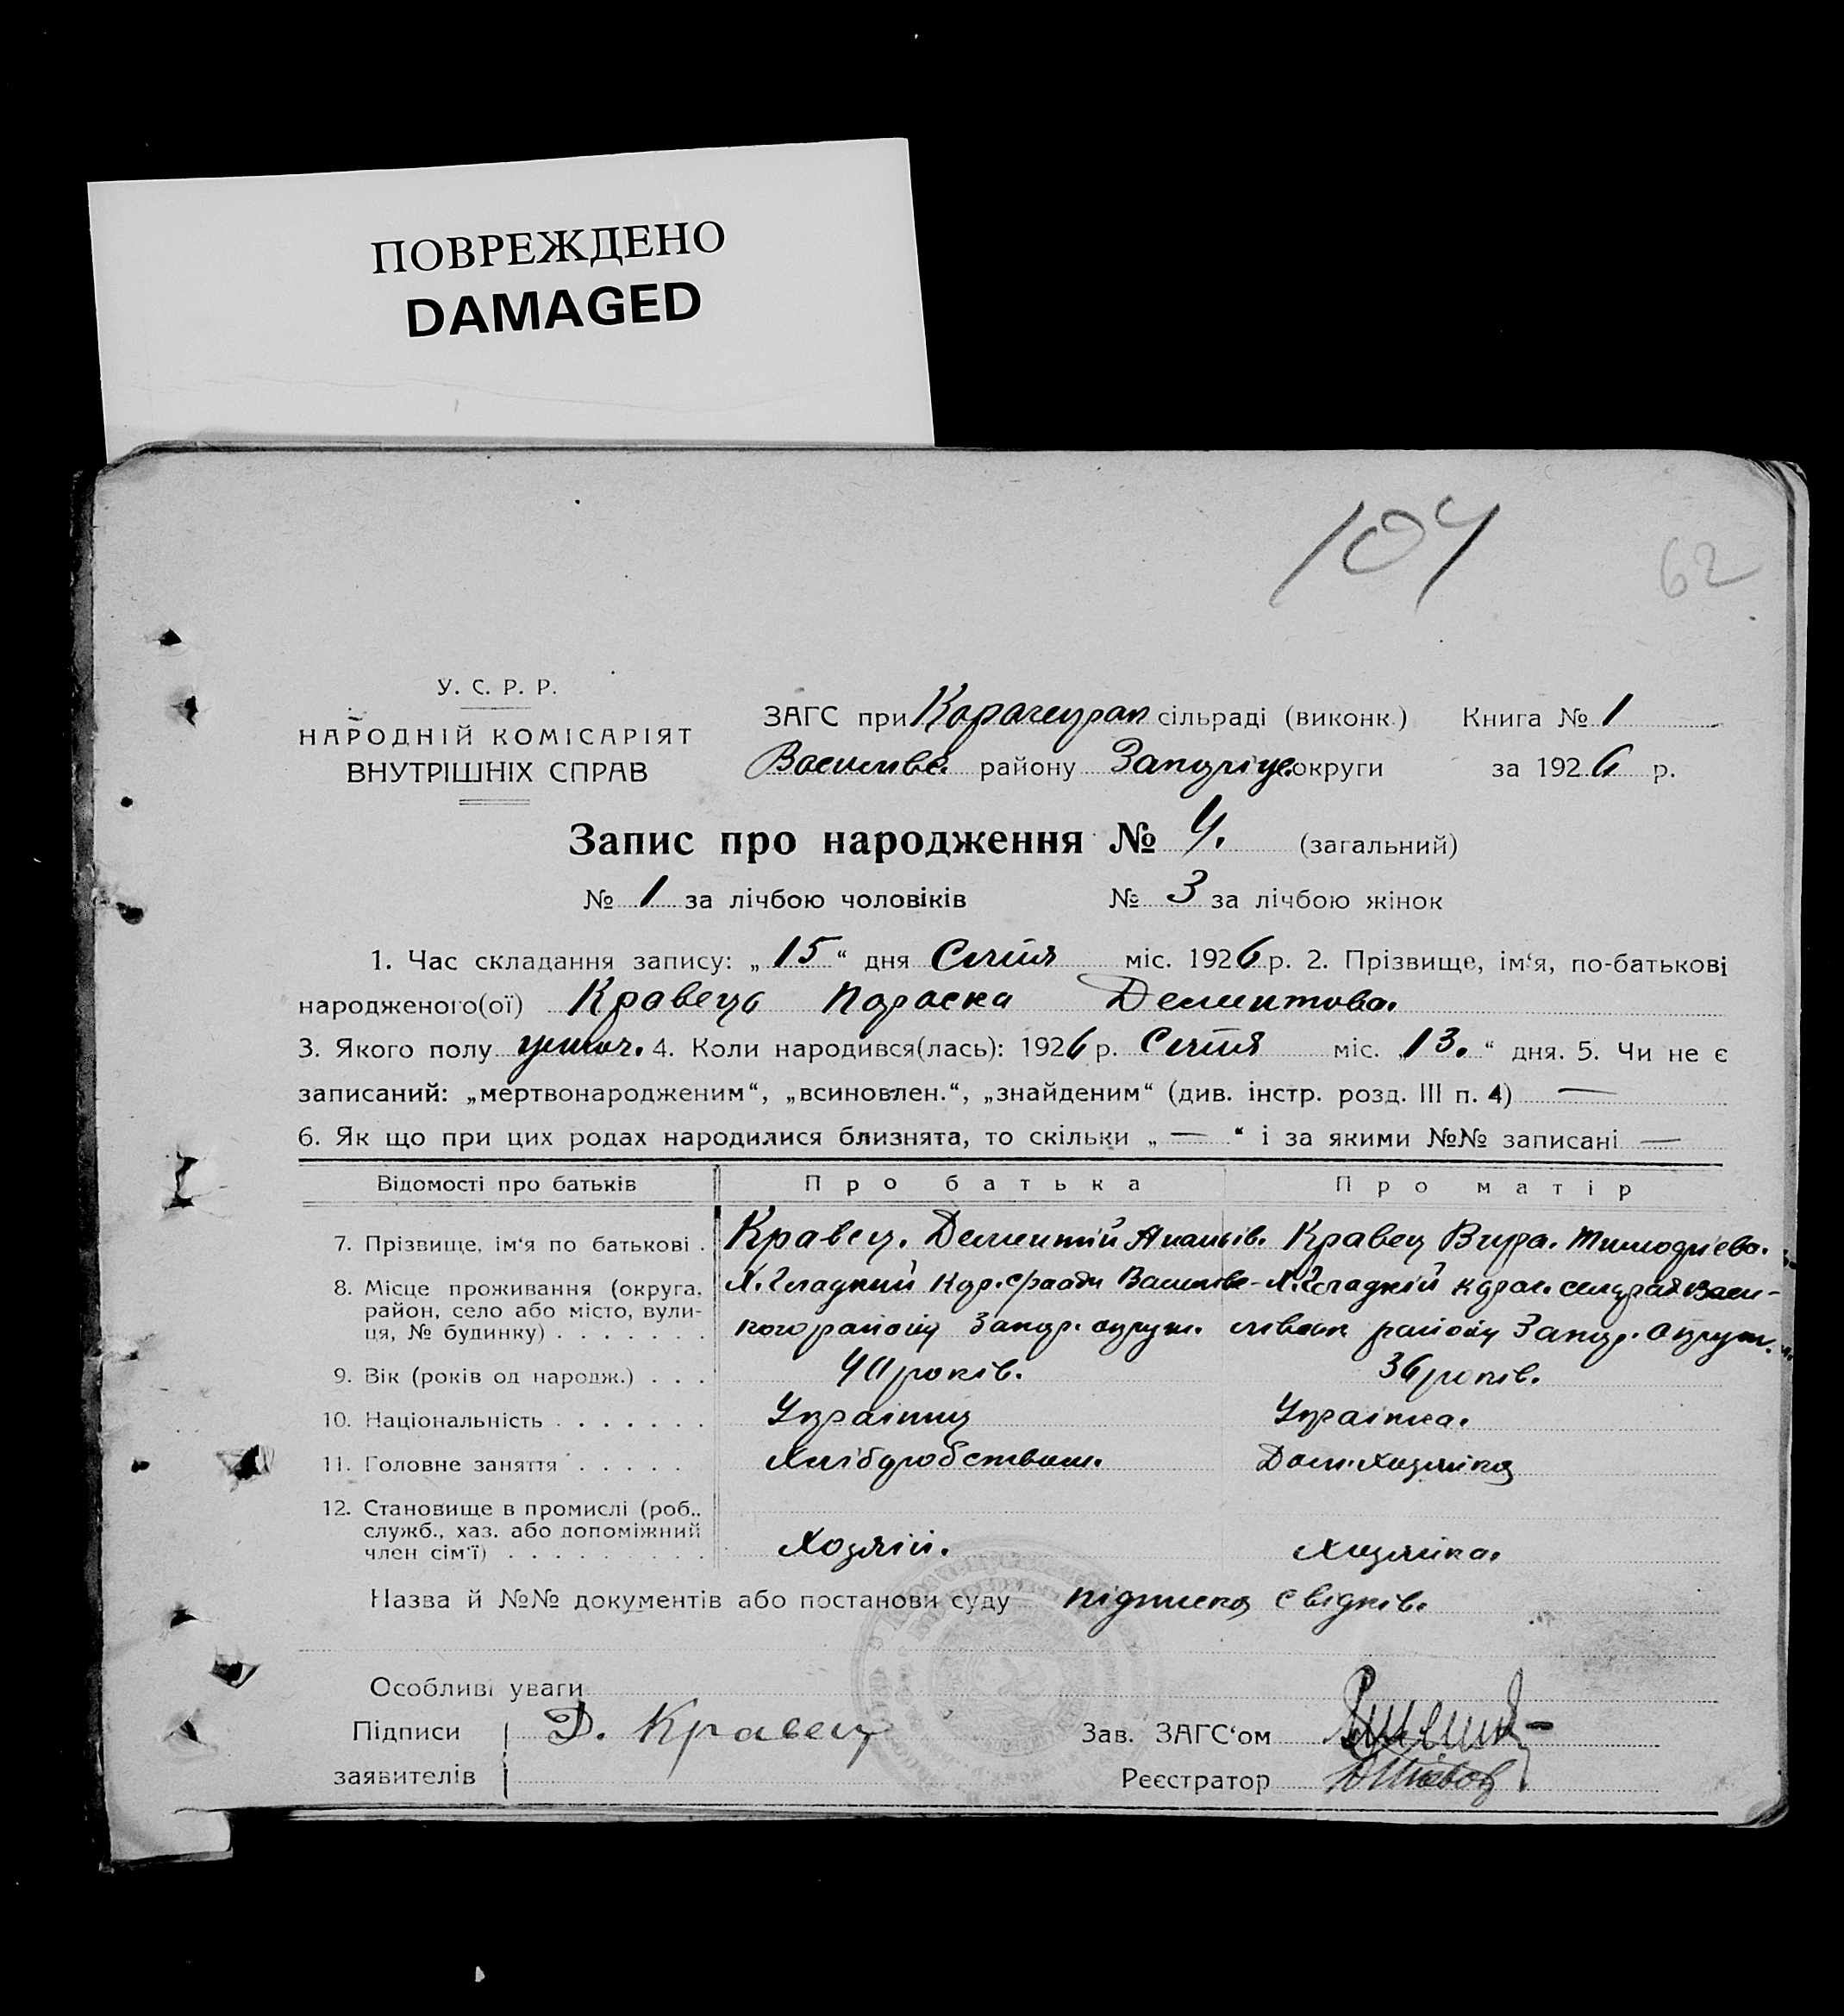 ПОВРЕЖДЕНО
DAMAGED
104
62
У. С. Р. Р.
НАРОДНІЙ КОМІСАРІЯТ
ВНУТРІШНІХ СПРАВ
ЗАГС при сільраді (виконк.) Книга № 1
Василівс. району округи за 1926 р.
Запис про народження № 4. (загальний)
№ 1 за лічбою чоловіків № 3 за лічбою жінок
1. Час складання запису: „15“ дня Січня міс. 1926 р. 2. Прізвище, ім‘я, по-батькові
народженого(ої) Кравець Параска Дементова.
3. Якого полу 4. Коли народився(лась): 1926 р. Січня міс. „13.“ дня. 5. Чи не є
записаний: „мертвонародженим“, „всиновлен.“, „знайденим“ (див. інстр. розд. III п. 4) —
6. Як що при цих родах народилися близнята, то скільки „ — “ і за якими №№ записані —
Відомості про батьків Про батька Про матір
7. Прізвище, ім‘я по батькові . Кравец. Дементій Ананьів. Кравец Тимофієва.
8. Місце проживання (округа, Х. Гладкий Х. Гладкій
район, село або місто, вули-
ця, № будинку) . . . . . . . кого району Запор. округи. району Запор. Округи.
9. Вік (років од народж.) . . . 40 років. 36 років.
10. Національність . . . . . . . Українец Українка.
11. Головне заняття . . . . . Хліборобством. Дом. Хозяйка
12. Становище в промислі (роб.,
служб., хаз. або допоміжний
член сім‘ї) . . . . . . . . . Хозяін. Хозяйка.
Назва й №№ документів або постанови суду підписка свідків.
Особливі уваги
Підписи Д. Кравец Зав. ЗАГС‘ом
заявителів Реєстратор